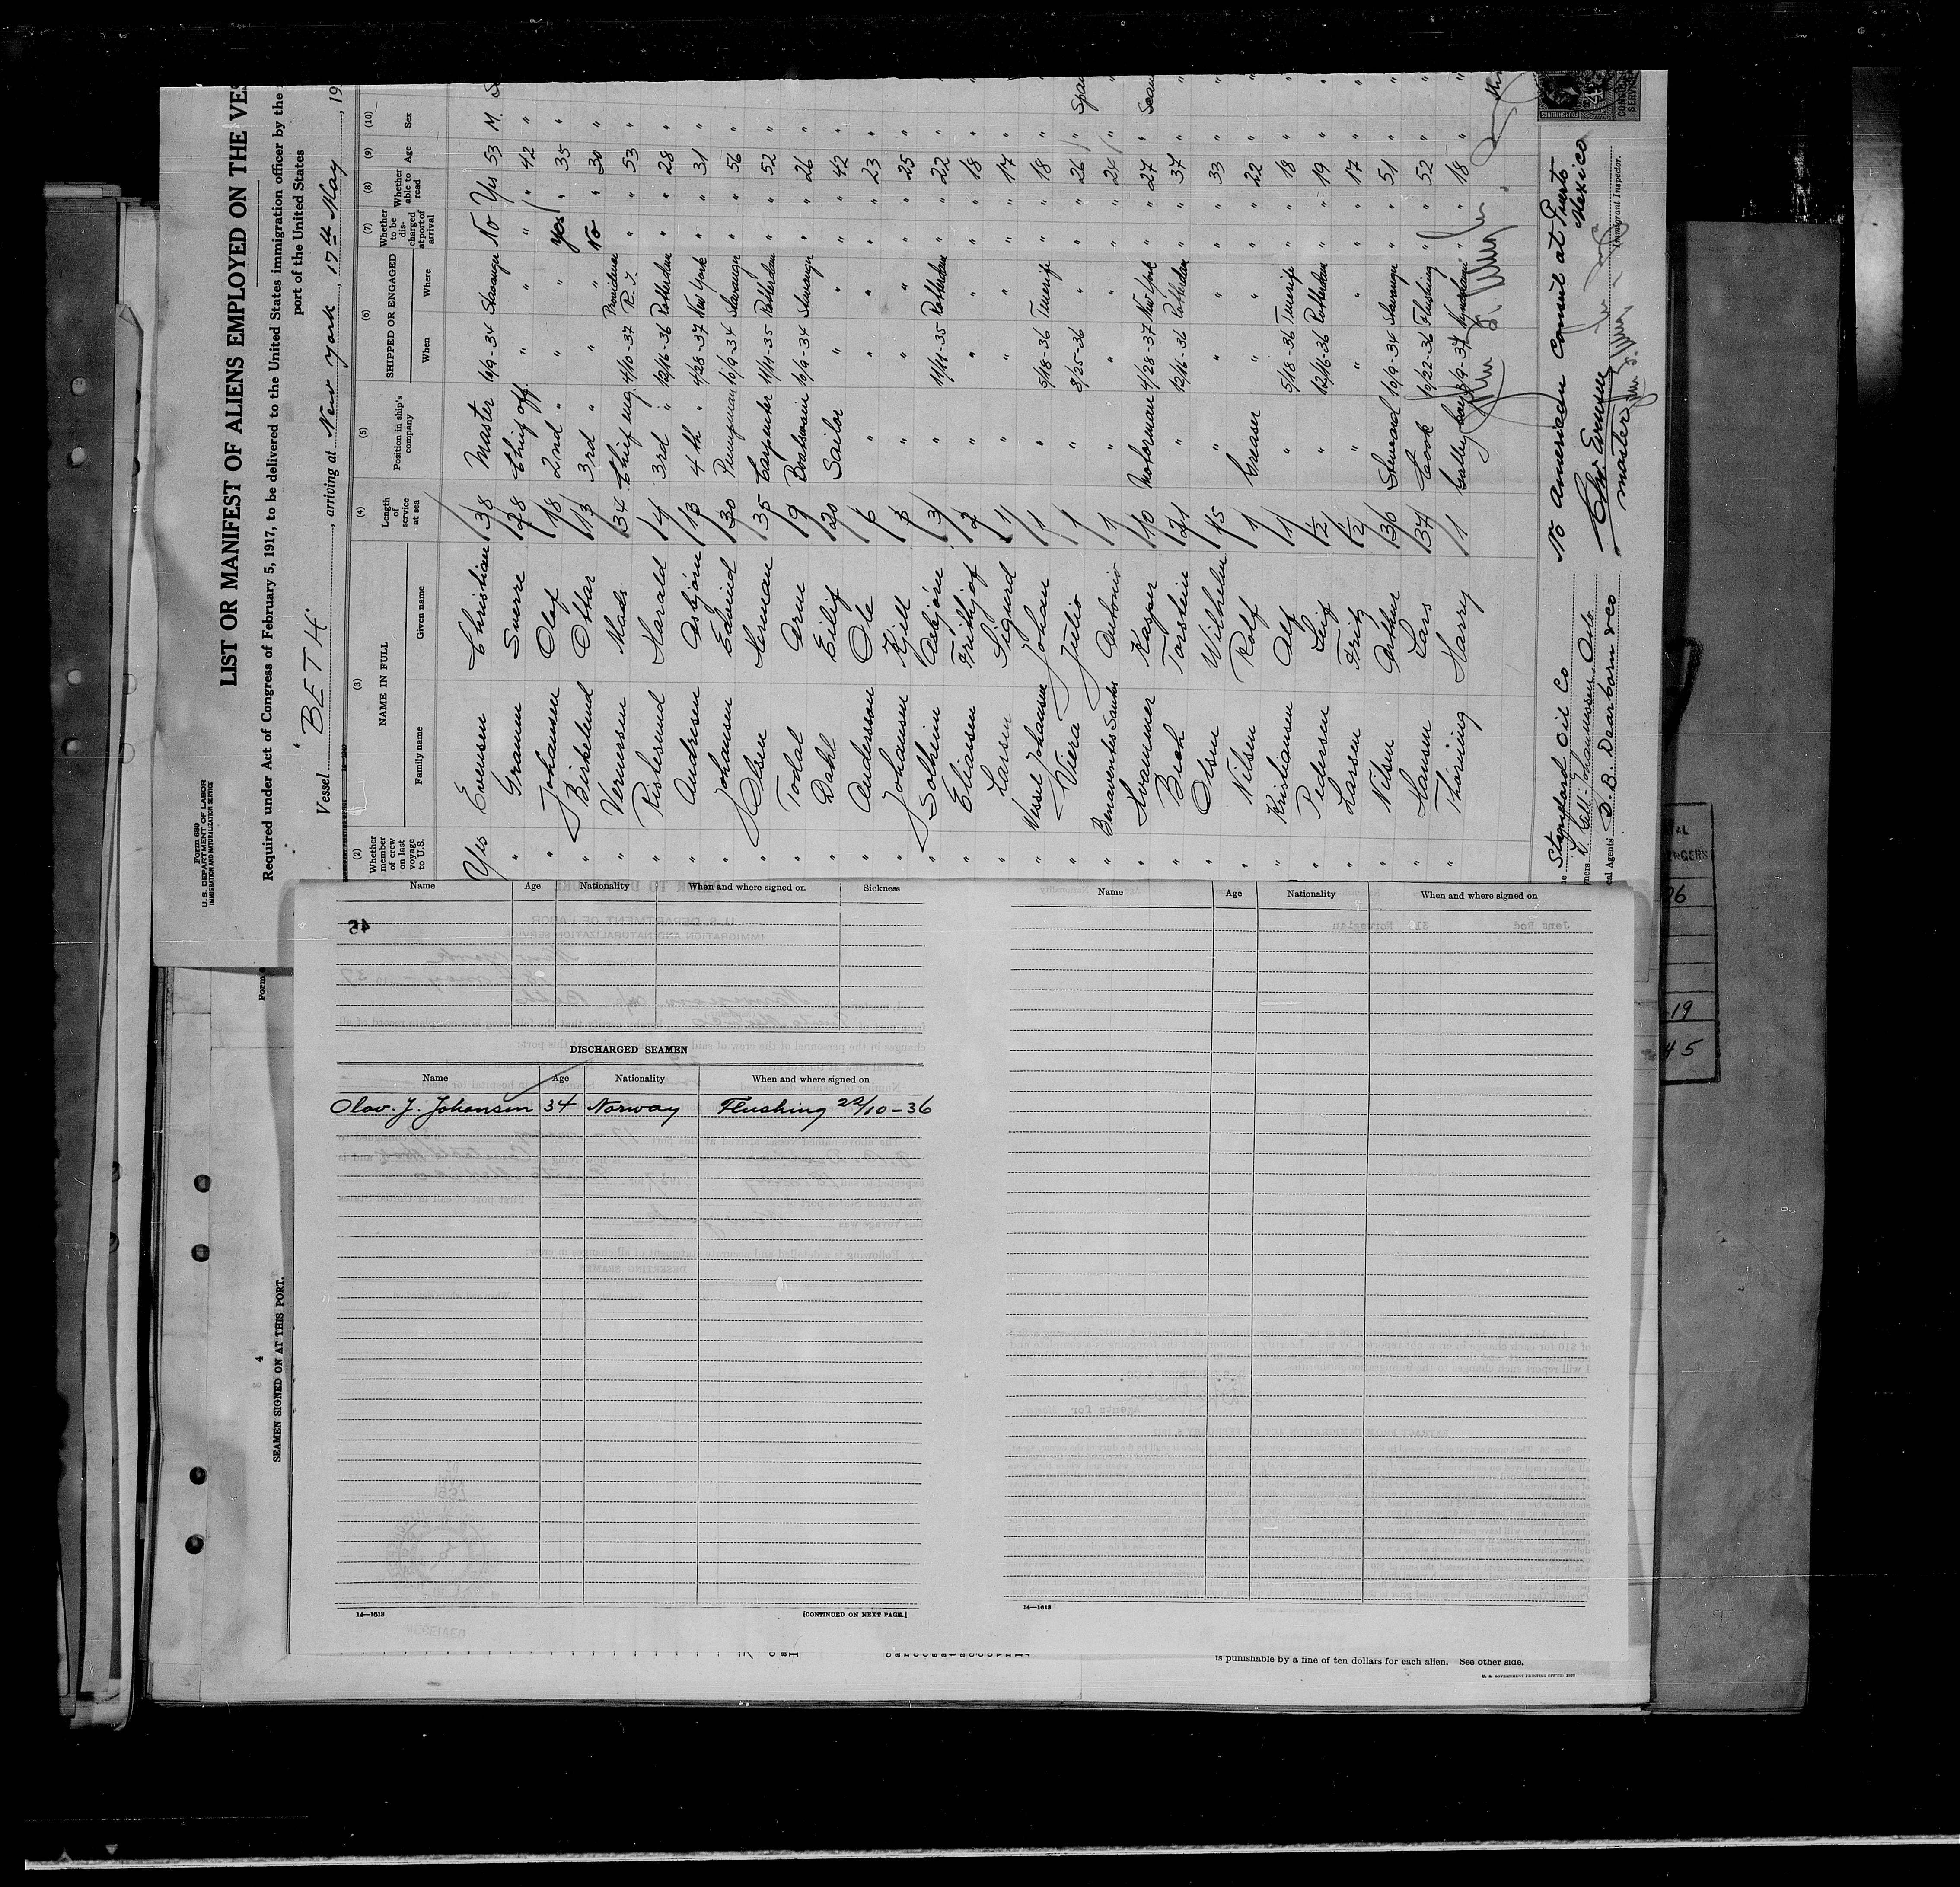 Form 689
U. S. DEPARTMENT OF LABOR
IMMIGRATION AND NATURALIZATION SERVICE
LIST OR MANIFEST OF ALIENS EMPLOYED ON THE VES
Required under Act of Congress of February 5, 1917, to be delivered to the United States immigration officer by the
port of the United States
Vessel "BETH", arriving at New York, 17th May, 19
(2) (3) (4) (5) (6) (7) (8) (9) (10)
Whether member of crew on last voyage to U.S. NAME IN FULL Family name Given name Length of service at sea Position in ship's company SHIPPED OR ENGAGED When Where Whether to be discharged at port of arrival Whether able to read Age Sex
Yes Evensen Christian 38 Master 10/9-34 Stavanger No Yes 53 M.
" Gramm Sverre 28 Chief off. " " " " 42 "
" Johansen Olaf 18 2nd " " " Yes " 35 "
" Birkelund Ottar 13 3rd " " " No " 30 "
" Vernersen Mads 34 Chief eng. 4/10-37 Providence R. I. " " 53 "
" Rislesund Harald 14 3rd " 12/16-36 Rotterdam " " 28 "
" Andresen Asbjørn 13 4th " 4/28-37 New York " " 31 "
" Johansen Edvind 30 Pumpman 10/9-34 Stavanger " " 56 "
" Olsen Herman 35 Carpenter 11/11-35 Rotterdam " " 52 "
" Todal Arne 9 Boatswain 10/9-34 Stavanger " " 26 "
" Dahl Eilif 20 Sailor " " " " 42 "
" Andersson Ole 6 " " " " " 23 "
" Johansen Kjell " " " " " 25 "
" Solheim Asbjörn 3 " 11/11-35 Rotterdam " " 22 "
" Eliasen Frithjof 2 " " " " " 18 "
" Larsen Sigurd 1 " " " " " 17 "
" Vessel Johansen Johan 1 " 5/18-36 Tenerife " " 18 "
" Viera Julio 1 " 8/25-36 " " " 26 " Spa
" Benaventis Santos Antonio 1 " " " " " 24 " "
" Hvammer Kasper 10 Motorman 4/28-37 New York " " 27 " Scan
" Bech Torstein 21 " 12/16-36 Rotterdam " " 37 " "
" Olsen Wilhelm 15 " " " " " 33 " "
" Nilsen Rolf 1 Greaser " " " " 22 " "
" Kristiansen Alf 1 " 5/18-36 Tenerife " " 18 " "
" Pedersen Leif 1/2 " 12/16-36 Rotterdam " " 19 " "
" Larsen Fritz 1/2 " " " " " 17 " "
" Nilsen Arthur 36 Steward 10/9-34 Stavanger " " 51 " "
" Hansen Lars 37 Cook 10/22-36 Flushing " " 52 " "
" Thorning Harry 1 Galley boy " " 18 " "
Standard Oil Co
Oslo
cal Agents D. B. Dearborn & Co
No American Consul at Puerto Mexico
Chr Evensen
master
Immigrant Inspector.
FOUR SHILLINGS
Name Age Nationality When and where signed on. Sickness
DISCHARGED SEAMEN
Name Age Nationality When and where signed on
Olav. J. Johansen 34 Norway Flushing 22/10-36
14—1613 [CONTINUED ON NEXT PAGE.]
Name Age Nationality When and where signed on
14—1613
Form
4
SEAMEN SIGNED ON AT THIS PORT.
is punishable by a fine of ten dollars for each alien. See other side.
U. S. GOVERNMENT PRINTING OFFICE
19
45